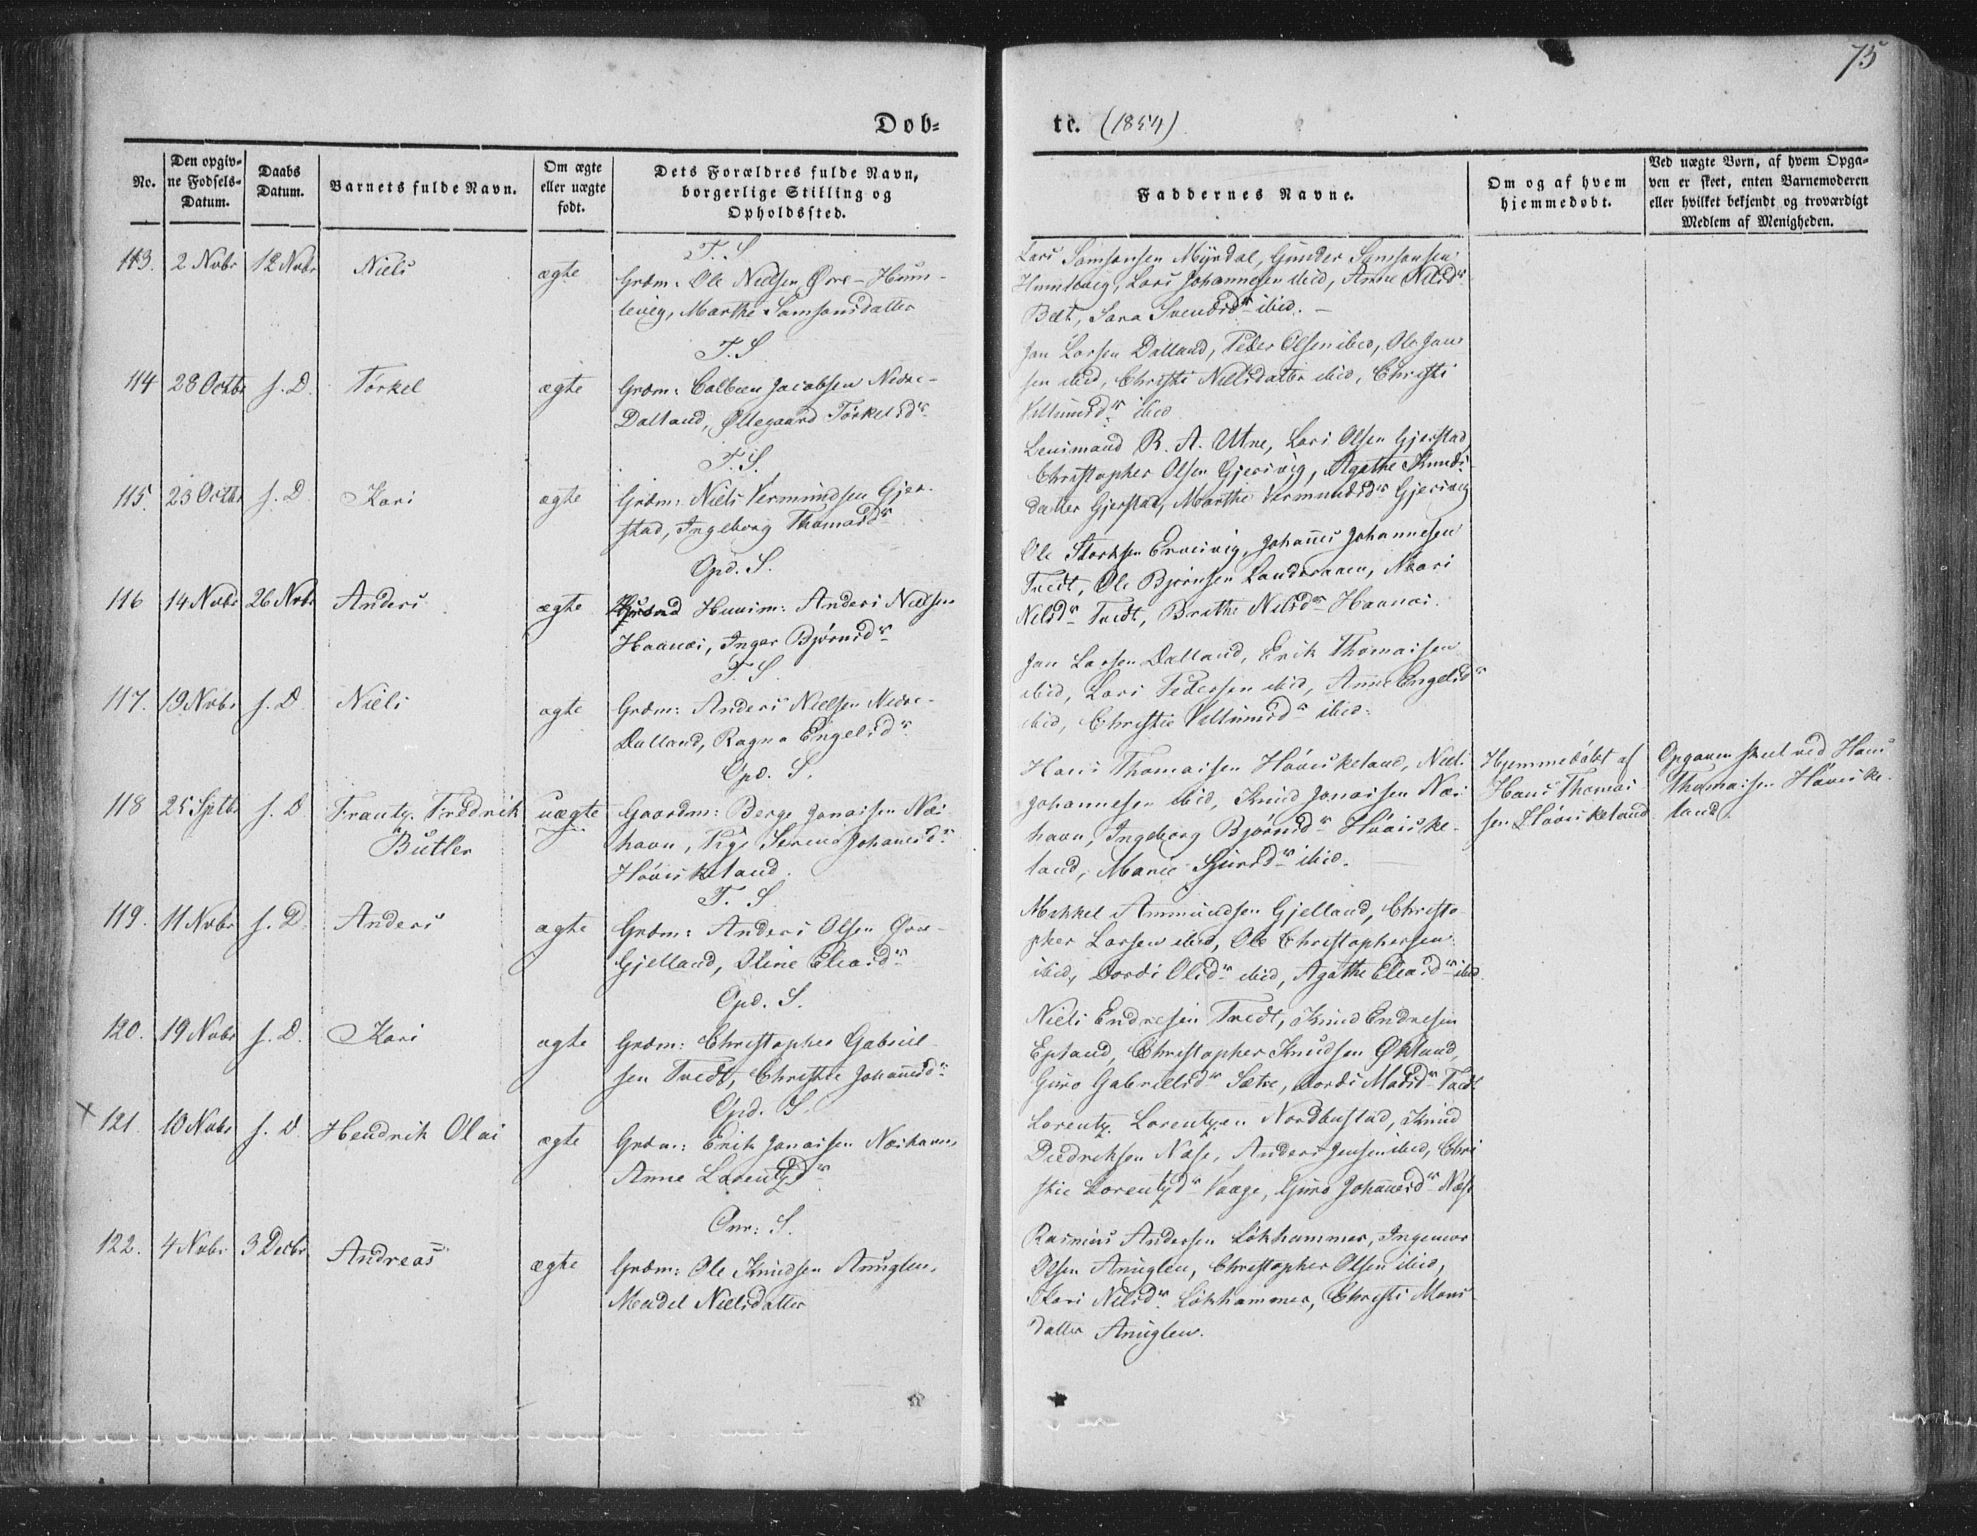 75
Døb-
te. (1854)
No.
Den opgiv-
ne Fødsels-
Datum.
Daabs
Datum.
Barnets fulde Navn.
Om ægte
eller uægte
født.
Dets Forældres fulde Navn,
borgerlige Stilling og
Opholdssted.
Faddernes Navne.
Om og af hvem
hjemmedøbt.
Ved uægte Børn, af hvem Opga-
ven er skeet, enten Barnemoderen
eller hvilket bekjendt og troværdigt
Medlem af Menigheden.
T. S
113. 2 Nvbr 12 Nvbr Niels ægte
Grdm: Ole Nielsen Øvre-Hum-
levig, Marthe Samsonsdatter
Lars Samsonsen Myrdal, Gunder Samsonsen
Humlevig, Lars Johannesen ibid, Anne Nilsdr
Bolt, Sara Svendsdr ibid.
T. S
114 28 Octbr s. D. Torkel ægte
Grdm: Colbein Jacobsen Nedre-
Dalland, Øllegaard Torkelsdr
Jan Larsen Dalland, Peder Olsen ibid, Ole Jan-
sen ibid, Christi Nielsdatter ibid, Christi
ibid
T. S.
115. 23 Octbr s. D Kari ægte
Grdm: Niels Vermundsen Gjer-
stad, Ingeborg Thomasdr
Lensmand R. A. Utne, Lars Olsen Gjerstad,
Christopher Olsen Gjersvig, Agathe Knuds-
datter Gjerstad, Marthe Vermundsdr Gjersvig
Opd. S.
116 14 Nvbr 26 Nvbr Anders ægte
Huusm: Anders Nielsen
Haanæs, Inger Bjørnsdr
Ole Ervesvig, Johannes Johannesen
Tvedt, Ole Bjørnsen Landeraaen, Kari
Nilsdr Tvedt, Brithe Nilsdr Haanæs.
T. S
117. 19 Nvbr s. D Niels ægte
Grdm: Anders Nielsen Nedre-
Dalland, Ragna Engelsdr
Jan Larsen Dalland, Erik Thomassen
ibid, Lars Pedersen ibid, Anne Engelsdr
ibid, Christie ibid.
Opd. S.
118 25 Sptbr s. D Frantz Fredrik uægte
Butler
Gaardm: Berge Jonassen Næs-
havn, Pige Serena Johannesdr
Høviskeland.
Hans Thomassen Høviskeland, Niels
Johannesen ibid, Knud Jonassen Næs-
havn, Ingeborg Bjørnsdr Høviske-
land, Marie Sjursdr ibid.
Hjemmedøbt af
Hans Thomas-
sen Høviskeland
Opgaven skeet ved Hans
Thomassen Høviske-
land.
T. S
119. 11 Nvbr s. D Anders ægte
Grdm: Anders Olsen Øvre-
Gjelland, Oline Eliasdr
Mikkel Ammundsen Gjelland, Christo-
pher Larsen ibid, Ole Christophersen
ibid, Dordi Olsdr ibid, Agathe Eliasdr ibid
Opd. S.
120. 19 Nvbr s. D. Kari ægte
Grdm: Christopher Gabriel-
sen Tvedt, Christie Johannesdr
Niels Endresen Tvedt, Knud Endresen
Epland, Christopher Knudsen Økland,
Guro Gabrielsdr Sætre, Dordi Madsdr Tvedt
Opd. S.
x 121. 10 Nvbr s. D. Hendrik Olai ægte
Grdm: Erik Jonassen Næshavn,
Anne Lorentzdr
Lorentz Lorentzen Nordbustad, Knud
Diedriksen Næse, Anders Jensen ibid, Chri-
stie Lorentzdr Vaage, Guro Johannesdr Næse
Onr: S.
122. 4 Nvbr 3 Decbr Andreas ægte
Grdm: Ole Knudsen Anuglen,
Mardel Nielsdatter
Rasmus Andersen Løkhammer, Ingemor
Olsen Anuglen, Christopher Olsen ibid,
Kari Nilsdr Løkhammer, Christi Mons-
datter Anuglen.